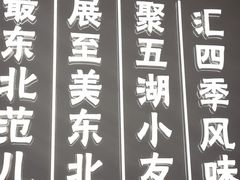 汇四季风味
聚五湖小友
展至美东北
最东北范儿